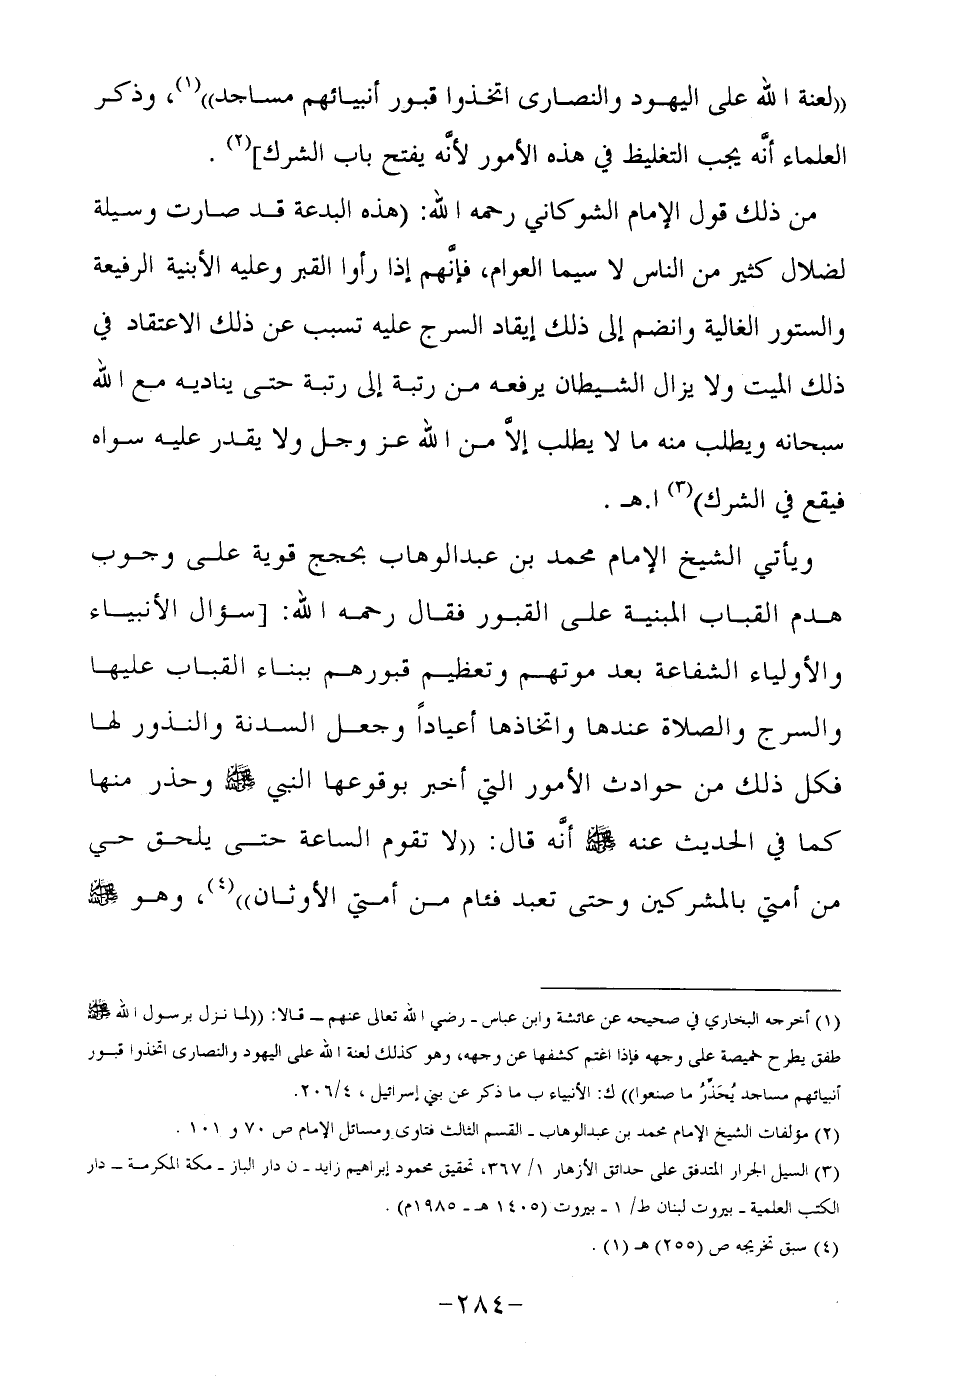 ((لعنة الله على اليهود والنصارى اتخذوا قبور أنبيائهم مساجد))(١)، وذكر
العلماء أنَّه يجب التغليظ في هذه الأمور لأنَّه يفتح باب الشرك](٢) .
من ذلك قول الإمام الشوكاني رحمه الله: (هذه البدعة قد صارت وسيلة
لضلال كثير من الناس لا سيما العوام، فإنَّهم إذا رأوا القبر وعليه الأبنية الرفيعة
والستور الغالية وانضم إلى ذلك إيقاد السرج عليه تسبب عن ذلك الاعتقاد في
ذلك الميت ولا يزال الشيطان يرفعه من رتبة إلى رتبة حتى يناديه مع الله
سبحانه ويطلب منه ما لا يطلب إلاَّ من الله عز وجل ولا يقدر عليه سواه
فيقع في الشرك)(٣) ا.هـ .
ويأتي الشيخ الإمام محمد بن عبدالوهاب بحجج قوية على وجوب
هدم القباب المبنية على القبور فقال رحمه الله: [سؤال الأنبياء
والأولياء الشفاعة بعد موتهم وتعظيم قبورهم ببناء القباب عليها
والسرج والصلاة عندها واتخاذها أعياداً وجعل السدنة والنذور لها
فكل ذلك من حوادث الأمور التي أخبر بوقوعها النبي ﷺ وحذر منها
كما في الحديث عنه ﷺ أنَّه قال: ((لا تقوم الساعة حتى يلحق حي
من أمتي بالمشركين وحتى تعبد فئام من أمتي الأوثان))(٤)، وهو ﷺ
(١) أخرجه البخاري في صحيحه عن عائشة وابن عباس - رضي الله تعالى عنهم - قالا: ((لما نزل برسول الله ﷺ
طفق يطرح خميصة على وجهه فإذا اغتم كشفها عن وجهه، وهو كذلك لعنة الله على اليهود والنصارى اتخذوا قبور
أنبيائهم مساجد يُحَذِّرُ ما صنعوا)) ك: الأنبياء ب ما ذكر عن بني إسرائيل ، ٢٠٦/٤.
(٢) مؤلفات الشيخ الإمام محمد بن عبدالوهاب - القسم الثالث فتاوى ومسائل الإمام ص ٧٠ و ١٠١ .
(٣) السيل الجرار المتدفق على حدائق الأزهار ١/ ٣٦٧، تحقيق محمود إبراهيم زايد - ن دار الباز - مكة المكرمة - دار
الكتب العلمية - بيروت لبنان ط/ ١ - بيروت (١٤٠٥ هـ - ١٩٨٥م) .
(٤) سبق تخريجه ص (٢٥٥) هـ (١) .
-٢٨٤-